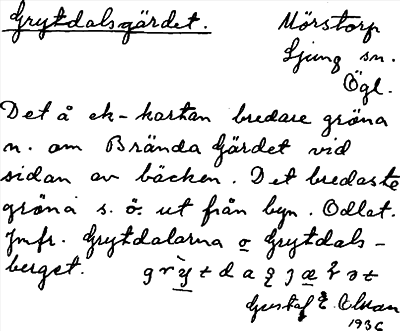 Grytdalsgärdet.
Mörstorp
Ljung sn.
Ögl.
Det å ek-kartan bredare gröna
n. om Brända Gärdet vid
sidan av bäcken. Det bredaste
gröna s. ö. ut från byn. Odlat.
Jmfr. Grytdalarna o Grytdals-
berget.
Gustaf E.
1936